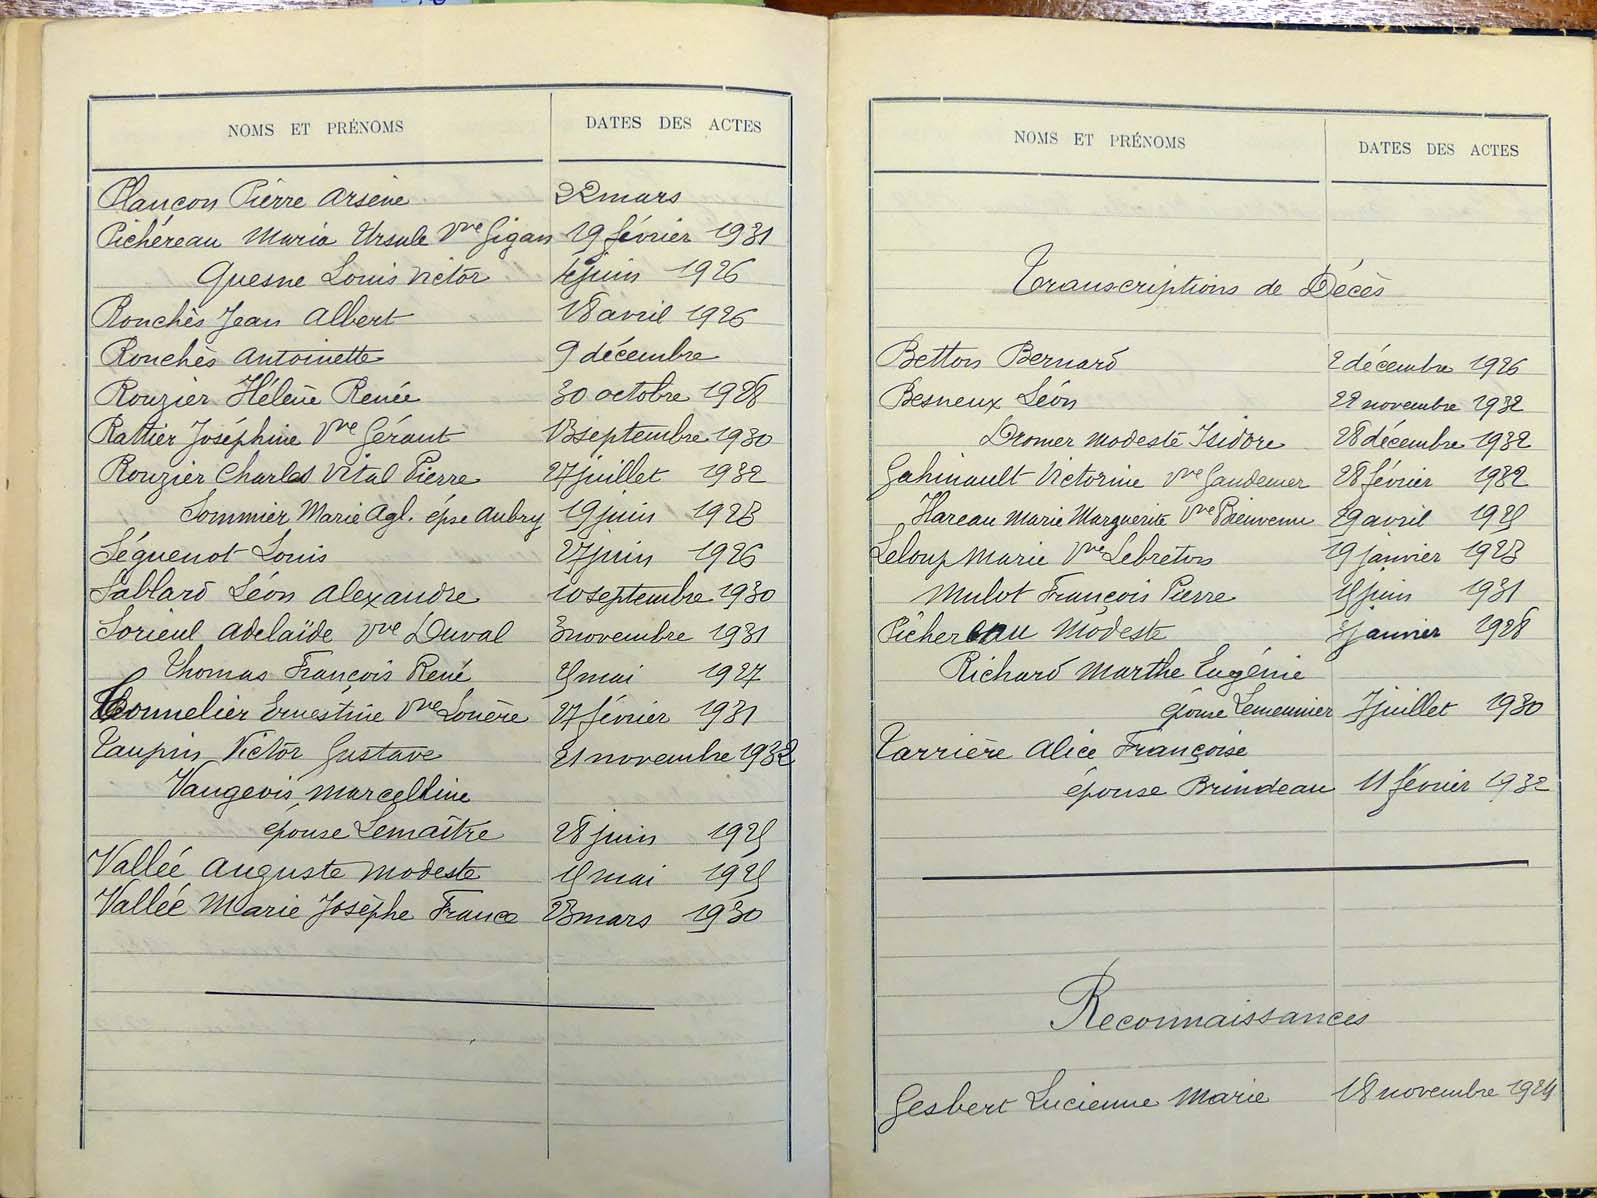 NOMS ET PRÉNOMS
DATES DES ACTES
Plançon Pierre Arsène 22 mars
Pichéreau Maria Ursule Vve Gigan 19 février 1931
Quesne Louis Victor 4 juin 1926
Ronchès Jean Albert 18 avril 1926
Ronchès Antoinette 9 décembre
Rouzier Hélène Renée 30 octobre 1928
Rattier Joséphine Vve Géraut 13 septembre 1930
Rouzier Charles Vital Pierre 27 juillet 1932
Sommier Marie Agl. épse Aubry 19 juin 1923
Séguenot Louis 27 juin 1926
Sablard Léon Alexandre 10 septembre 1930
Sorieul Adelaïde Vve Duval 3 novembre 1931
Thomas François René mai 1927
Tonnelier Ernestine Vve Louère 27 février 1931
Taupin Victor Gustave 21 novembre 1932
Vaugeois Marcelline
épouse Lemaître 28 juin 1925
Vallée Auguste Modeste 15 mai 1925
Vallée Marie Josèphe France 23 mars 1930
NOMS ET PRÉNOMS
DATES DES ACTES
Transcriptions de Décès
Betton Bernard 2 décembre 1926
Besneux Léon 22 novembre 1932
Dromer Modeste Isidore 28 décembre 1932
Gahinault Victorine Vve Gaudemer 28 février 1932
Hareau Marie Marguerite Vve Bienvenu 29 avril 1925
Leloup Marie Vve Lebreton 19 janvier 1923
Mulot François Pierre 15 juin 1931
Pichereau Modeste janvier 1928
Richard Marthe Eugénie
épouse Lemeunier 7 juillet 1930
Tarrière Alice Françoise
épouse Brindeau 11 février 1932
Reconnaissances
Gesbert Lucienne Marie 18 novembre 1924